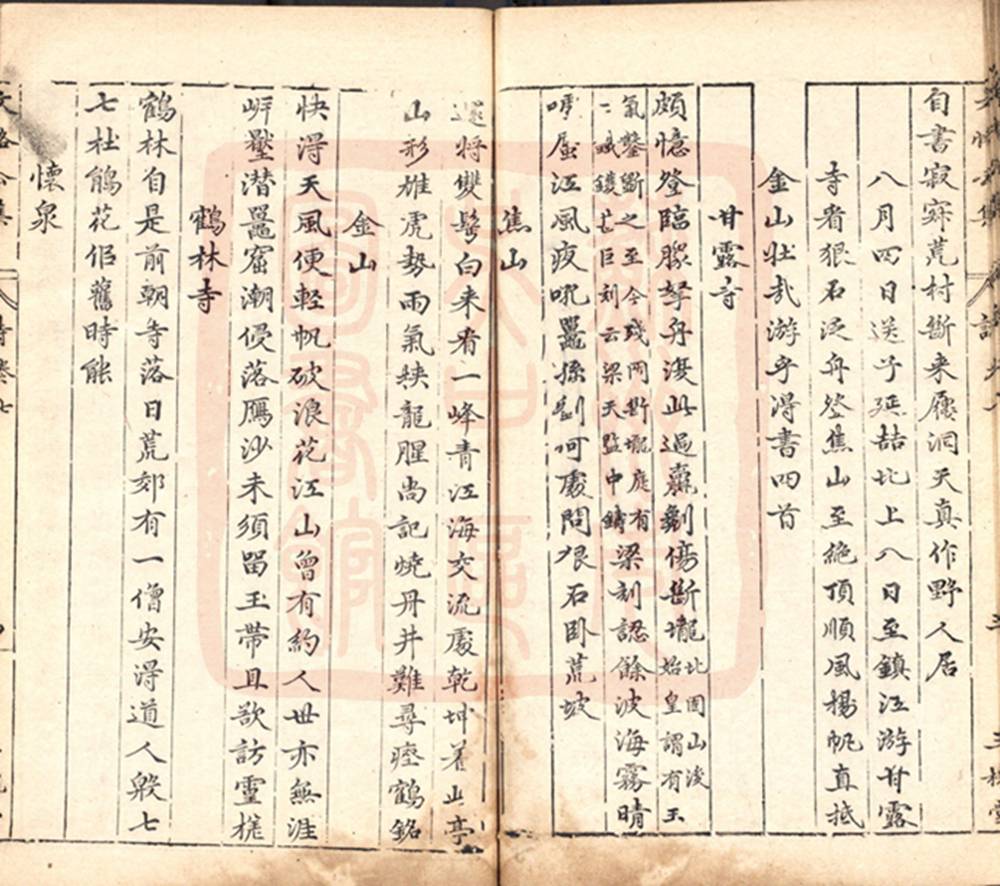 自書寂寞荒村斷来屐洞天真作野人居
八月四日送子延喆北上八日至鎮江游甘露
寺看狠石泛舟登焦山至絶頂順風揚帆直抵
金山壮哉游乎得書四首
甘露寺
頗憶登臨𦡱孥舟復此過嚴劖傷斷壠北固山後
始皇謂有王
氣鑿斷之至今殘岡斷壠庭有
鑊亡巨刻云梁天監中鑄梁刻認餘波海霧晴
嘑蜃江風夜吼鼉孫劉何處問狠石卧荒坡
焦山
還将雙鬢白来看一峰青江海交流處乾坤著此亭
山形雄虎勢雨氣挾龍腥尚記燒丹井難尋瘞鶴銘
金山
快得天風便輕帆破浪花江山曾有約人世亦無涯
岈壑潜鼉窟潮侵落鴈沙未須留玉帶且欲訪靈槎
鶴林寺
鶴林自是前朝寺落日荒郊有一僧安得道人殷七
七杜鵑花佀舊時能
懐泉